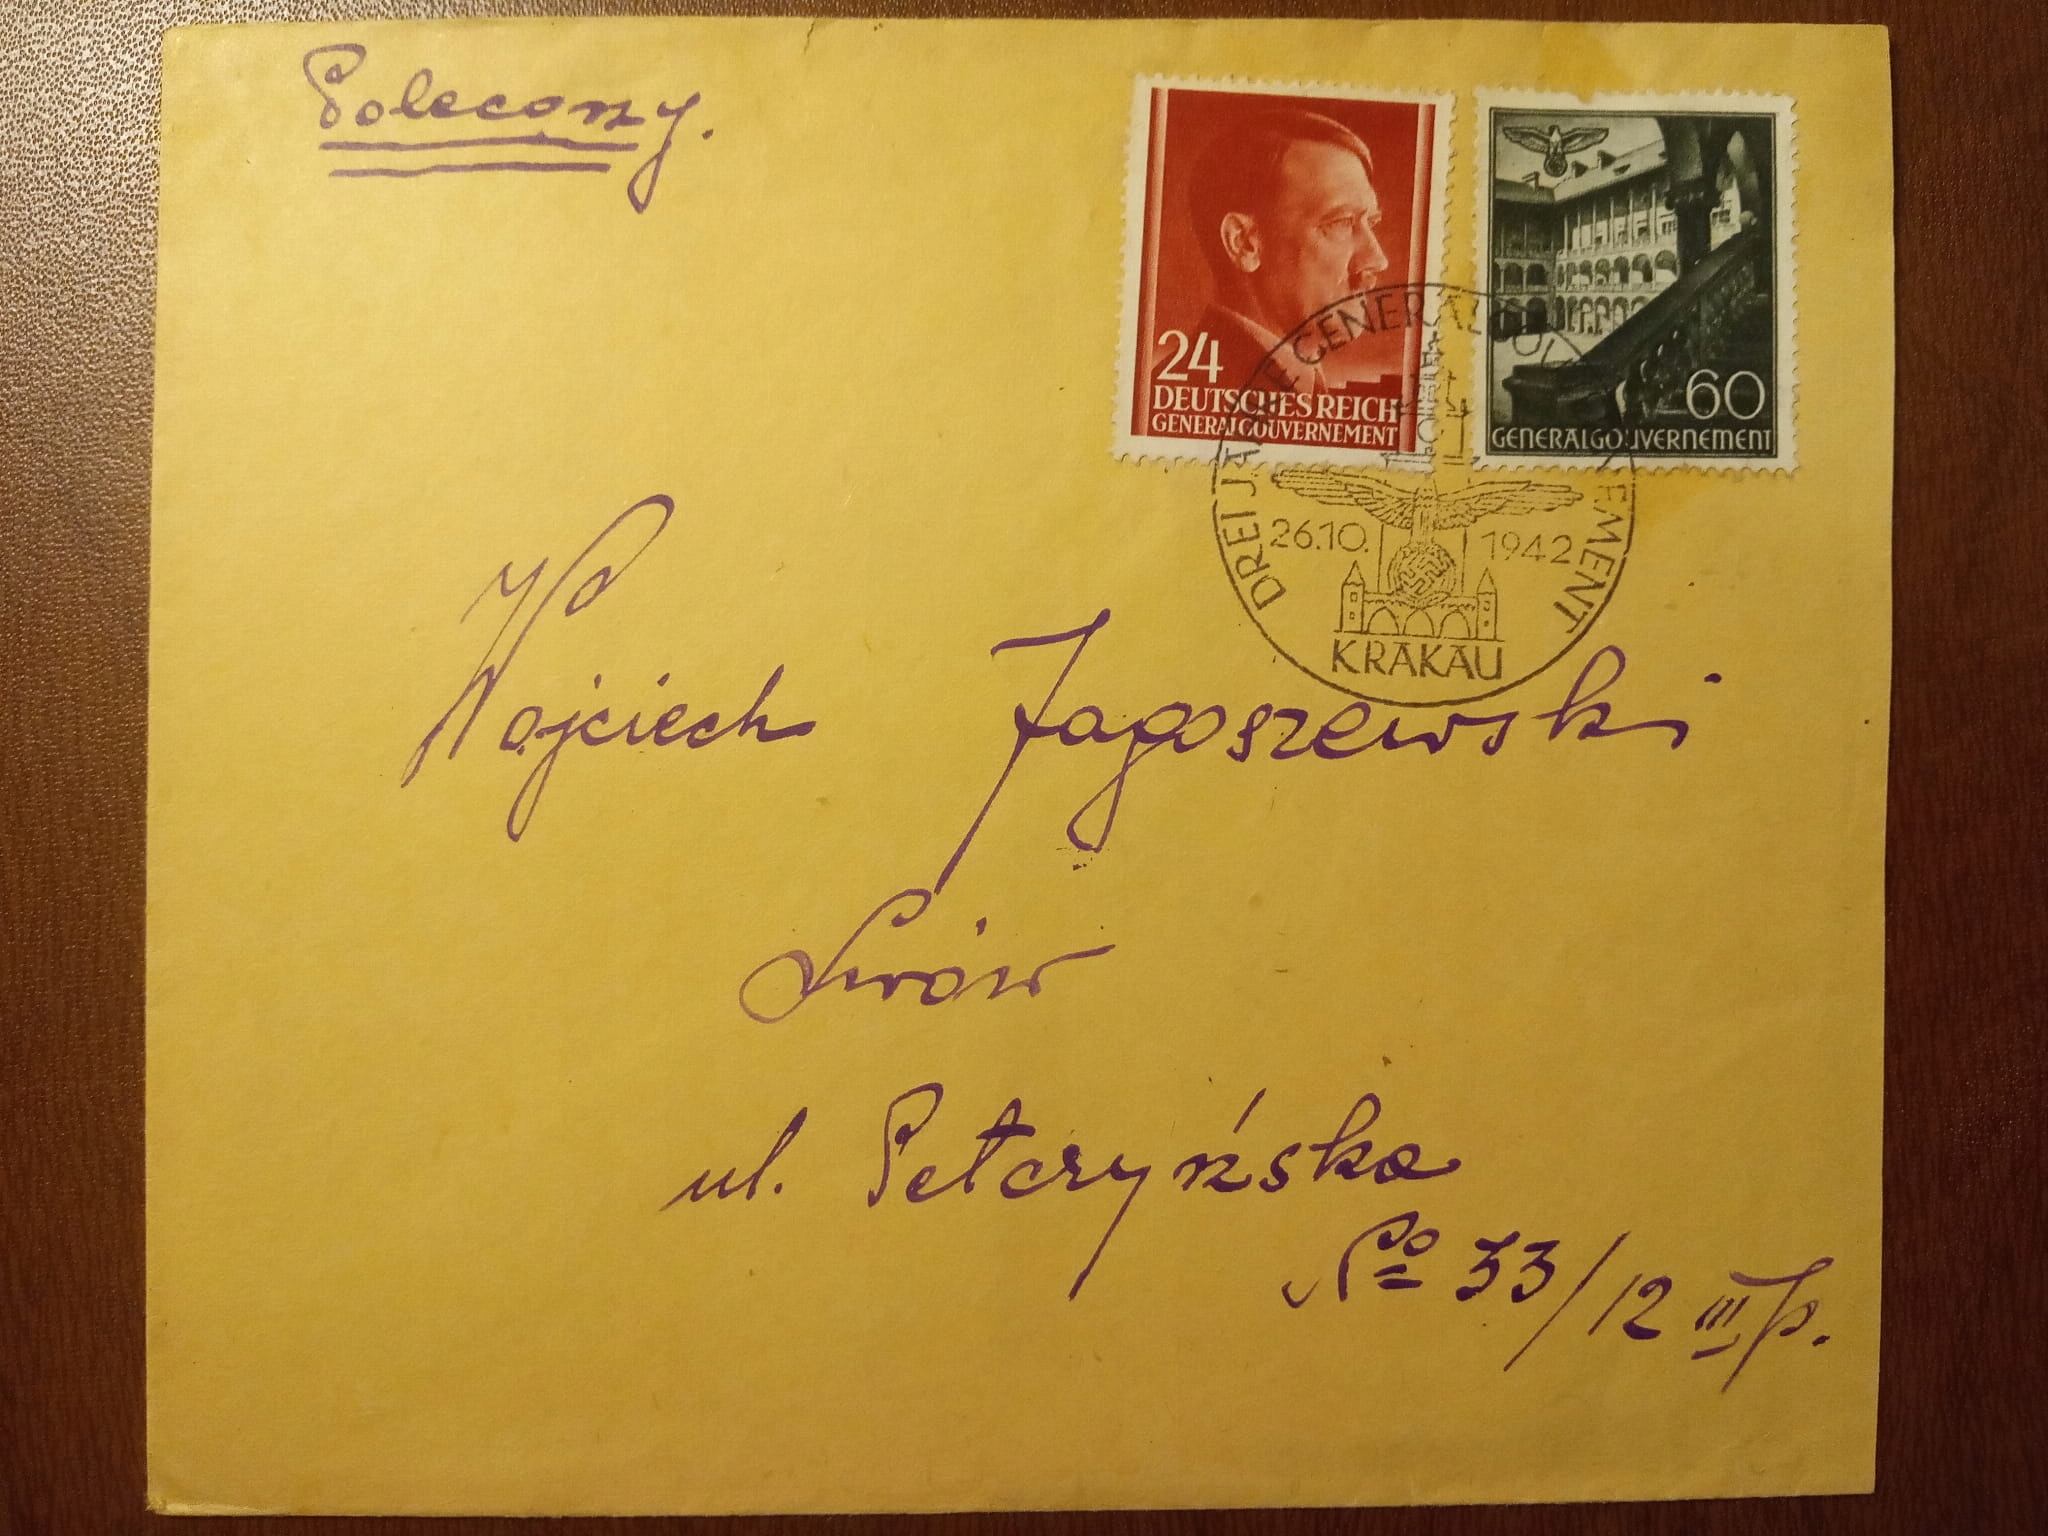 Polecony.
24
DEUTSCHES REICH
GENERALGOUVERNEMENT
60
GENERALGOUVERNEMENT
DREI JAHRE GENERALGOUVERNEMENT
26.10. 1942
KRAKAU
Wojciech Jagoszewski
Lwów
ul. Pełczyńska
No 33/12 III p.